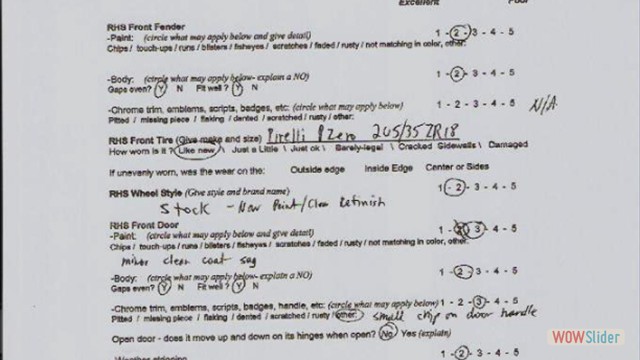 Excellent Poor
RHS Front Fender
-Paint: (circle what may apply below and give detail) 1 - 2 - 3 - 4 - 5
Chips / touch-ups / runs / blisters / fisheyes / scratches / faded / rusty / not matching in color, other:
-Body: (circle what may apply below- explain a NO) 1 - 2 - 3 - 4 - 5
Gaps even? Y N Fit well? Y N
-Chrome trim, emblems, scripts, badges, etc: (circle what may apply below) 1 - 2 - 3 - 4 - 5 N/A
Pitted / missing piece / flaking / dented / scratched / rusty / other:
RHS Front Tire (Give make and size) Pirelli PZero 205/35ZR18
How worn is it? Like new \ Just a Little \ Just ok \ Barely-legal \ Cracked Sidewalls \ Damaged
If unevenly worn, was the wear on the: Outside edge Inside Edge Center or Sides
RHS Wheel Style (Give style and brand name) 1 - 2 - 3 - 4 - 5
Stock - New Paint/Clear Refinish
RHS Front Door
-Paint: (circle what may apply below and give detail) 1 - 2 - 3 - 4 - 5
Chips / touch-ups / runs / blisters / fisheyes / scratches / faded / rusty / not matching in color, other:
minor clear coat sag
-Body: (circle what may apply below- explain a NO) 1 - 2 - 3 - 4 - 5
Gaps even? Y N Fit well? Y N
-Chrome trim, emblems, scripts, badges, handle, etc: (circle what may apply below) 1 - 2 - 3 - 4 - 5
Pitted / missing piece / flaking / dented / scratched / rusty / other: small chip on door handle
Open door - does it move up and down on its hinges when open? No Yes (explain)
-Weather stripping 1 - 2 - 3 - 4 - 5
WOWSlider